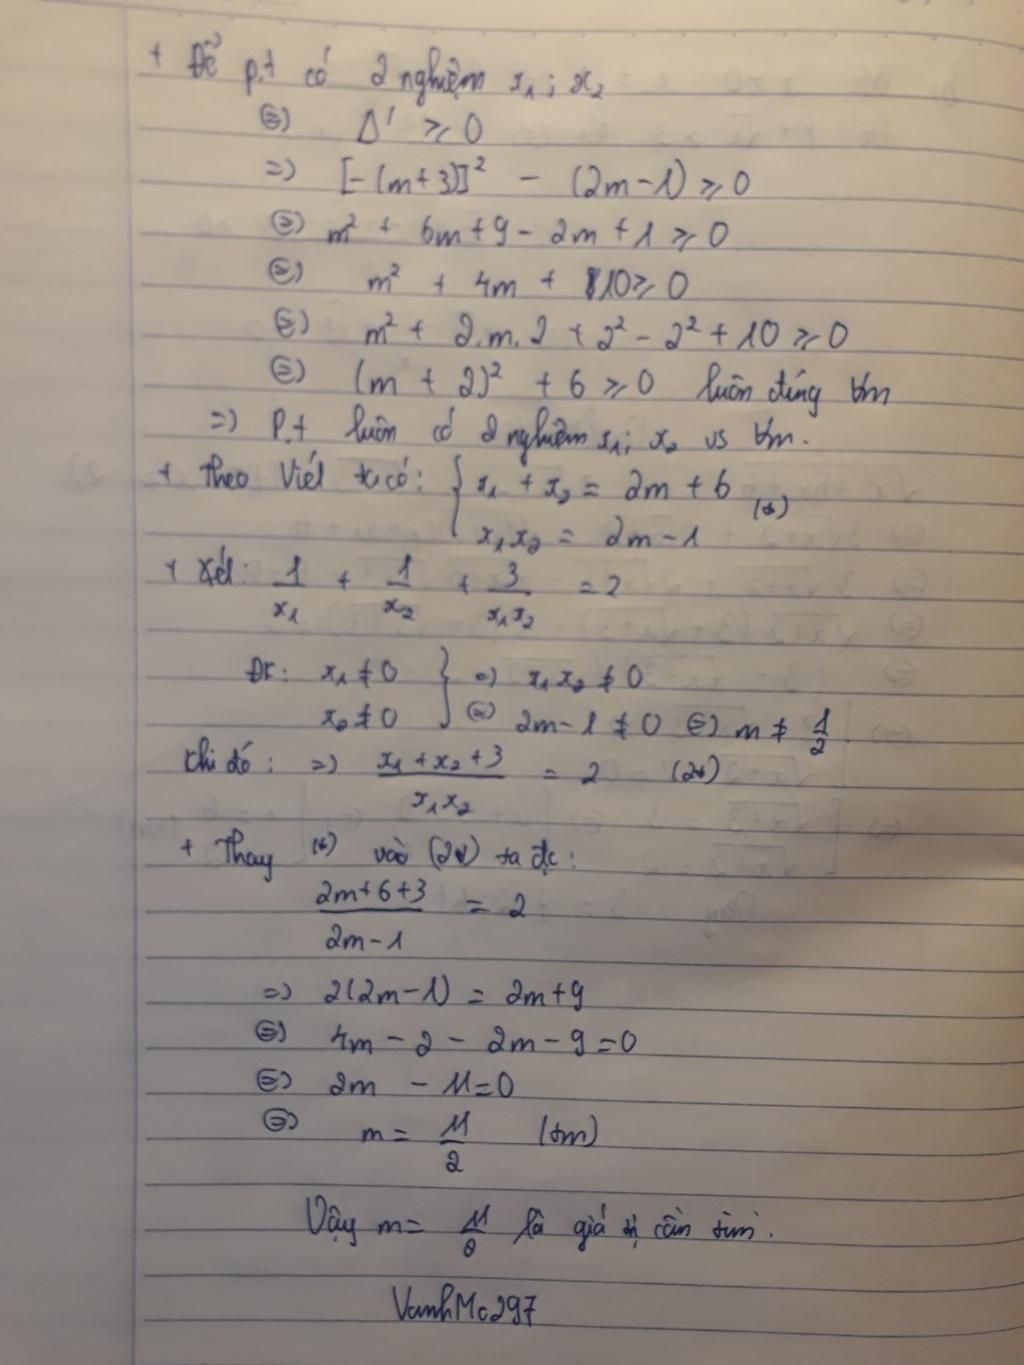 + Để p.t có 2 nghiệm x₁; x₂
⇔) Δ' ≥ 0
=) [-(m+3)]² - (2m-1) ≥ 0
⇔) m² + 6m + 9 - 2m + 1 ≥ 0
⇔) m² + 4m + 10 ≥ 0
⇔) m² + 2.m.2 + 2² - 2² + 10 ≥ 0
⇔) (m + 2)² + 6 ≥ 0 luôn đúng ∀m
=) P.t luôn có 2 nghiệm x₁; x₂ vs ∀m.
+ Theo Viét ta có: { x₁ + x₂ = 2m + 6 (*)
x₁x₂ = 2m - 1
+ Xét: 1/x₁ + 1/x₂ + 3/x₁x₂ = 2
Đk: x₁ ≠ 0 } =) x₁x₂ ≠ 0
x₂ ≠ 0 ⇔) 2m - 1 ≠ 0 ⇔) m ≠ 1/2
Khi đó: =) (x₁ + x₂ + 3)/x₁x₂ = 2 (2*)
+ Thay (*) vào (2*) ta đc:
(2m+6+3)/(2m-1) = 2
=) 2(2m-1) = 2m+9
⇔) 4m - 2 - 2m - 9 = 0
⇔) 2m - 11 = 0
⇔) m = 11/2 (tm)
Vậy m = 11/2 là giá trị cần tìm.
VanhMc297